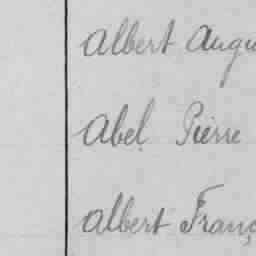 Albert Augu
Abel Pierre
Albert Franç